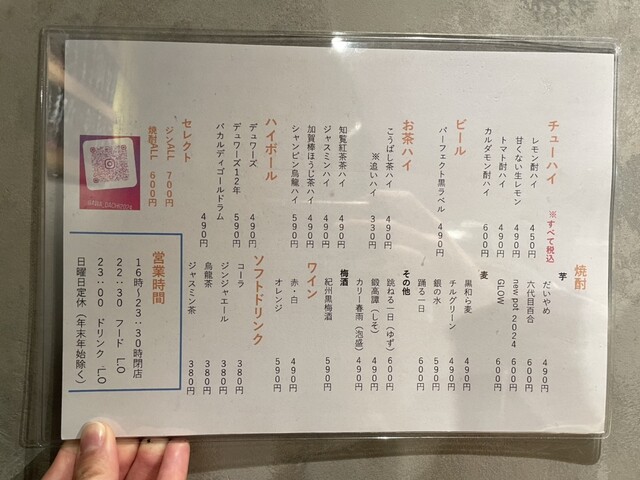 チューハイ ※すべて税込
レモン酎ハイ 450円
甘くない生レモン 490円
トマト酎ハイ 490円
カルダモン酎ハイ 600円
ビール
パーフェクト黒ラベル 490円
お茶ハイ
こうばし茶ハイ 490円
※追いハイ 330円
知覧紅茶茶ハイ 490円
ジャスミンハイ 490円
加賀棒ほうじ茶ハイ 490円
シャンピン烏龍ハイ 590円
ハイボール
デュワーズ 490円
デュワーズ12年 590円
バカルディゴールドラム 490円
セレクト
ジンALL 700円
焼酎ALL 600円
焼酎
芋
だいやめ 490円
六代目百合 600円
new pot 2024 600円
GLOW 600円
麦
黒和ら麦 490円
チルグリーン 490円
銀の水 590円
踊る一日 600円
その他
跳ねる一日(ゆず) 600円
鍛高譚(しそ) 490円
カリー春雨(泡盛) 490円
梅酒
紀州黒梅酒 590円
ワイン
赤・白 490円
オレンジ 590円
ソフトドリンク
コーラ 380円
ジンジャエール 380円
烏龍茶 380円
ジャスミン茶 380円
営業時間
16時~23:30時閉店
22:30 フード LO
23:00 ドリンク LO
日曜日定休(年末年始除く)